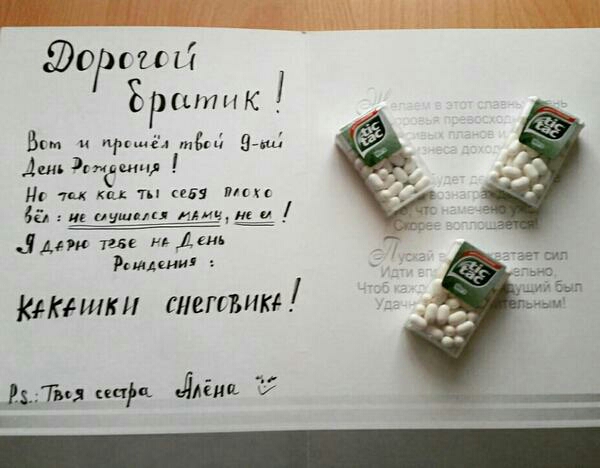 Дорогой
братик!
Вот и прошёл твой 9-ый
День Рождения!
Но так как ты себя плохо
вёл: не слушался маму, не ел!
Я дарю тебе на День
Рождения:
КАКАШКИ СНЕГОВИКА!
P.s.: Твоя сестра Алёна
Желаем в этот славный день
превосходн
планов и
бизнеса доход
будет де
вознаграж
что намечено уж
Скорее воплощается!
Пускай хватает сил
Идти вп ельно,
Чтоб кажд дущий был
Удачн ительным!
tic
tac
tic
tac
tic
tac